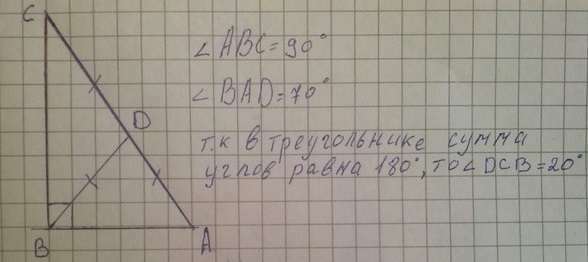 C
∠ABC=90°
∠BAD=70°
D
т.к в треугольнике сумма
углов равна 180°, то ∠DCB=20°
B
A